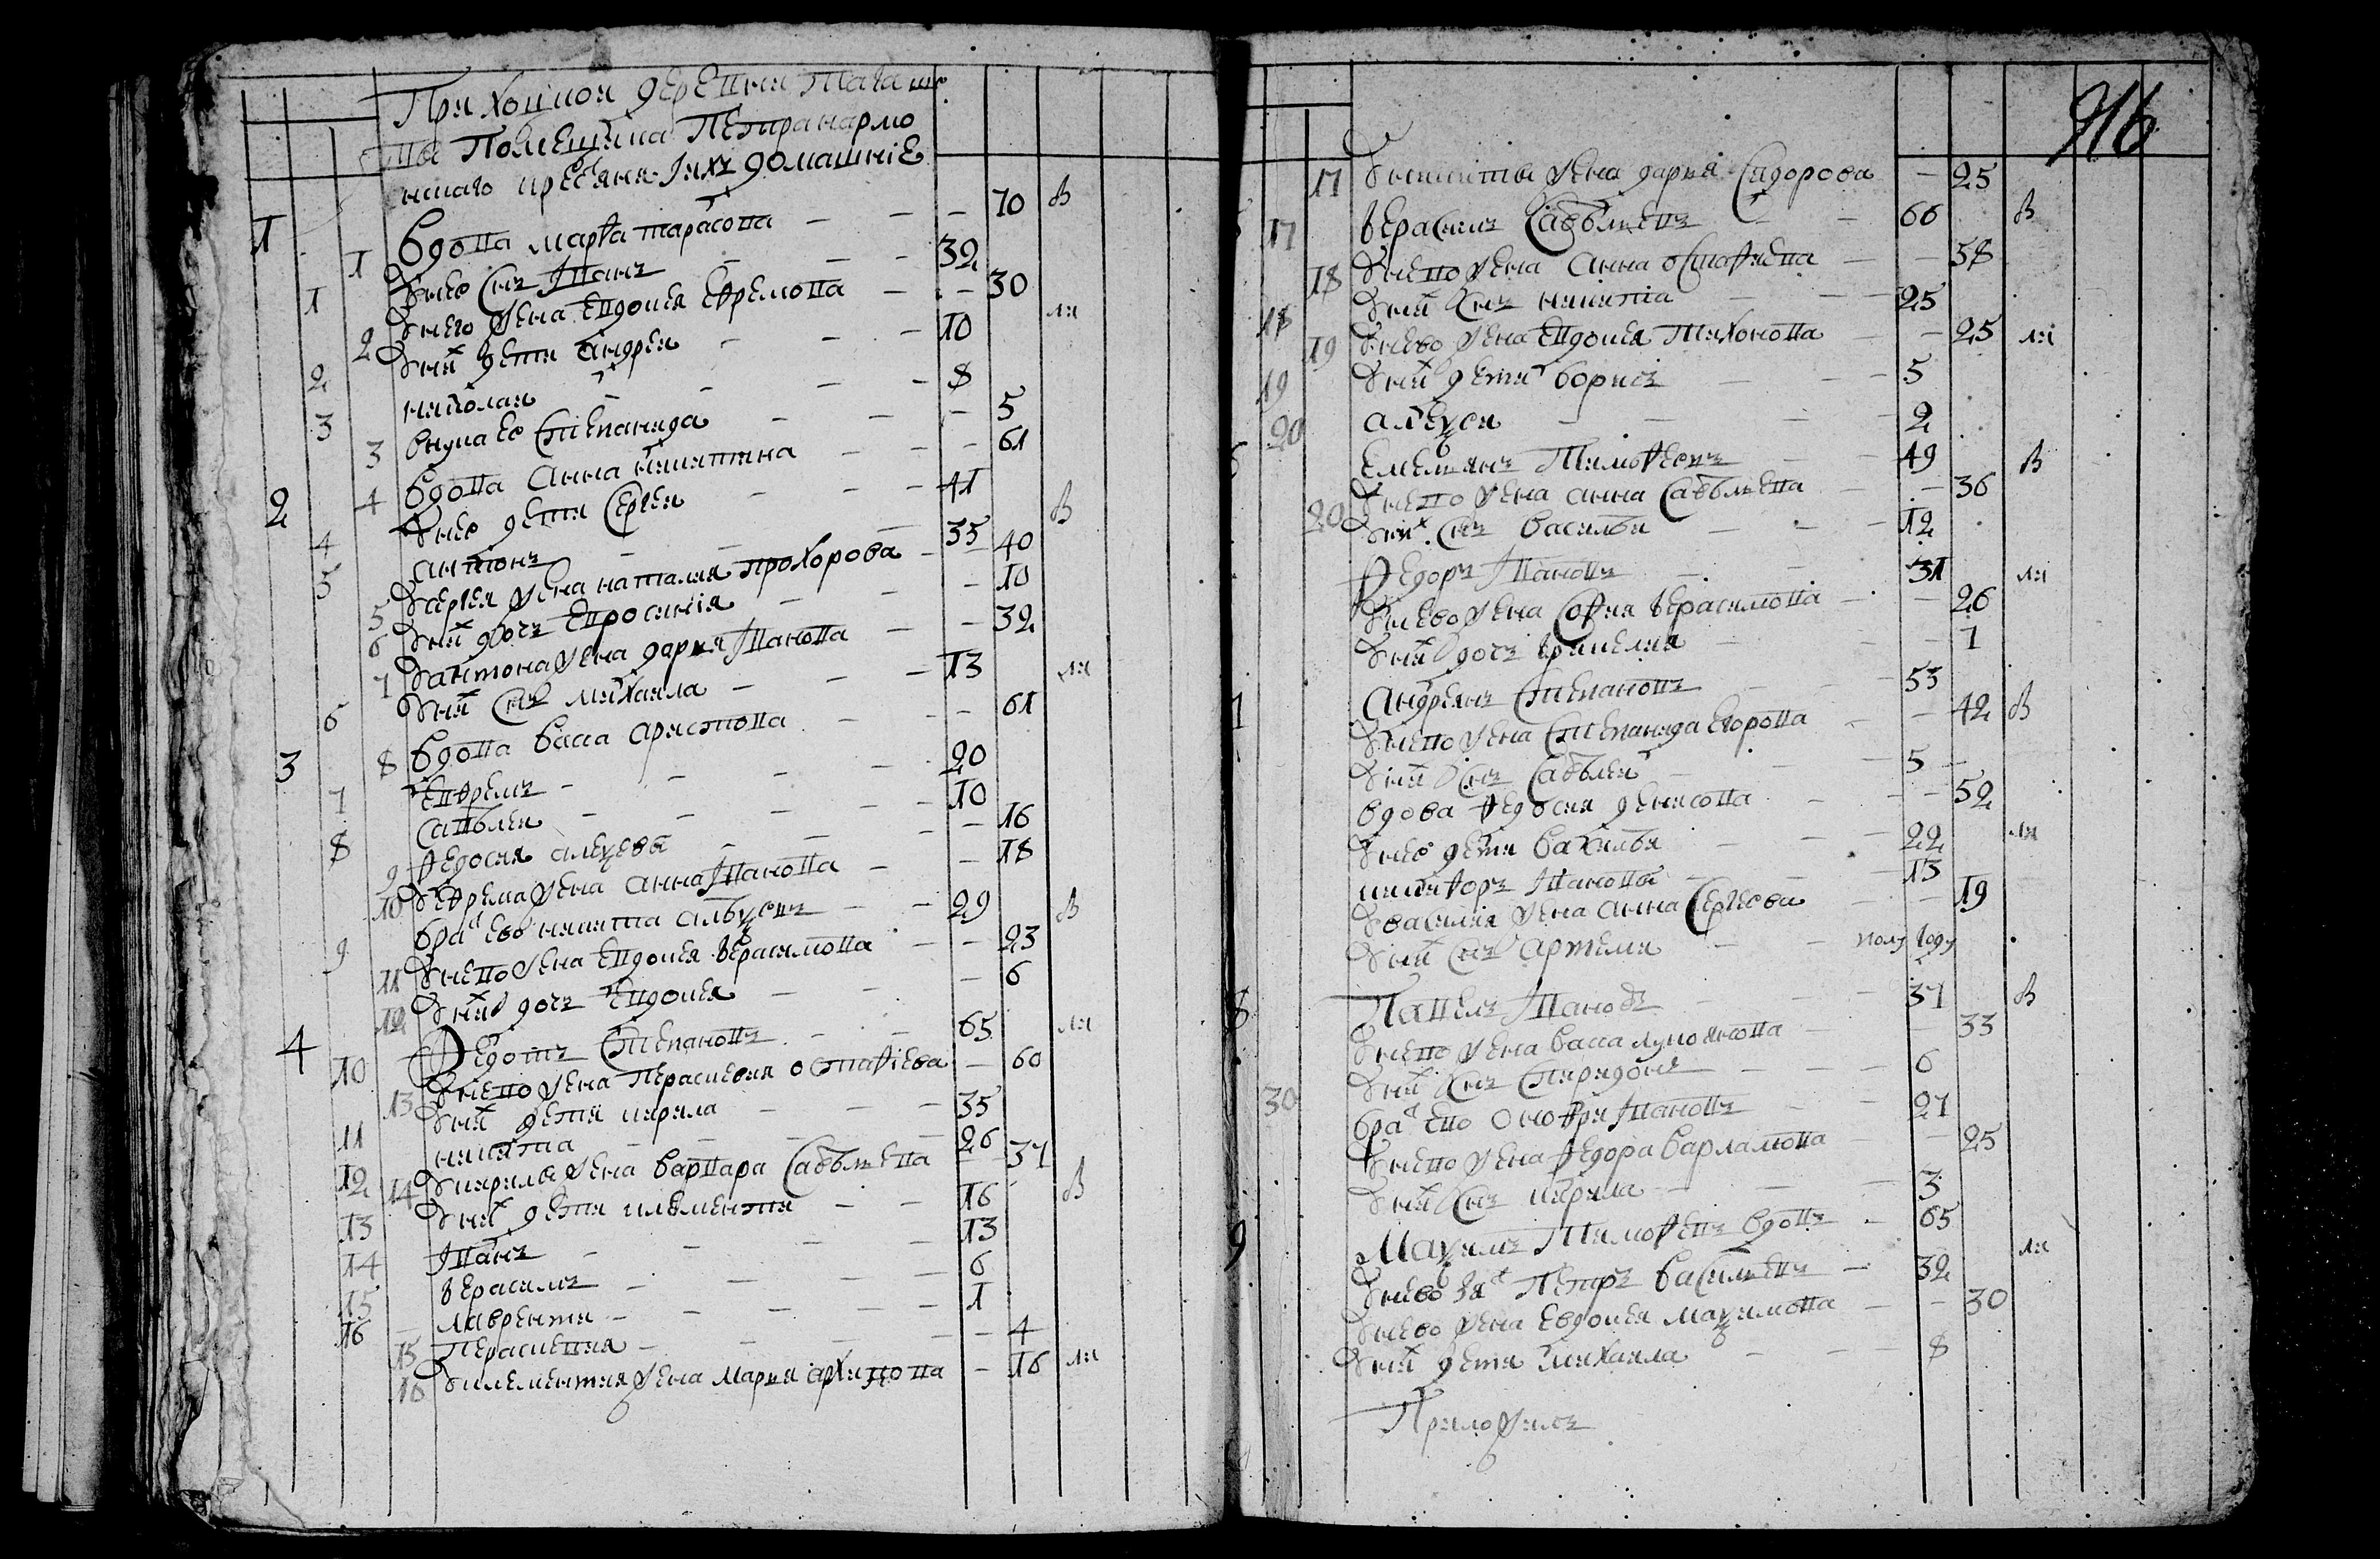 Приходской деревни
Помещика Петра
крестьяня и их домашние
1 1 Вдова Марфа Тарасова 70 В
1 У нее сын Иван 32
2 У него жена Евдокея Ефремова 30
2 У них дети Андрей 10
3 Николаи 8
3 внука ее Степанида 5
2 4 Вдова Анна Никитина 61
4 У нее дети Сергей 41 В
5 Антонъ 35
5 У Сергея жена наталия Прохорова 40
6 У них дочь Евросиния 10
7 У антона жена дарья Иванова 32
6 У них сын михаила 13
3 8 Вдова Васса Аристова 61
7 Ефремъ 20
8 Савелеи 10
9 Федосия алексева 16
10 У Ефрема жена анна Иванова 18
9 брат ево никита алексеевъ 29 В
11 У нево жена Евдокея Герасимова 23
12 У них дочь Евдокея 6
4 10 Федотъ Степановъ 65
13 У нево жена Парасковия остафиева 60
11 У них дети кирила 35
12 никита 26
14 У кирилы жена варвара Савельева 37
13 У них дети клементии 16 В
14 Иванъ 13
15 Герасимъ 6
16 лаврентии 1
15 Парасковия 4
16 У клементия жена Мария Архипова 16
916
17 У никиты жена дарья Сидорова 25
17 Герасимъ Савельевъ 66 В
18 У нево жена Анна остафиева 58
18 У них сын никита 25
19 У нево жена Евдокея Тихонова 25
19 У них дети борисъ 5
20 алексеи 2
Емельянъ Тимофеевъ 49 В
20 У нево жена анна Савельева 36
У них сын василеи 12
Федоръ Ивановъ 31
У нево жена София Герасимова 26
У них дочь 1
Андреянъ Степановъ 53
У нево жена Степанида Егорова 42 В
У них сын Савелеи 5
вдова Федосия денисова 52
У нее дети василеи 22
никифоръ Ивановы 13
У василия жена анна Сергеева 19
У них сын артемеи полугоду
8 Павелъ Ивановъ 37 В
У нево жена васса лукоянова 33
У них сын Спиридонъ 6
30 брат ево онофреи Ивановъ 27
У нево жена Федора варламова 25
У них сын кирила 3
9 Максимъ Тимофеевъ вдовъ 65
У нево зят Петръ васильевъ 32
У нево жена Евдокея максимова 30
У них дети михаила 8
Приложилъ